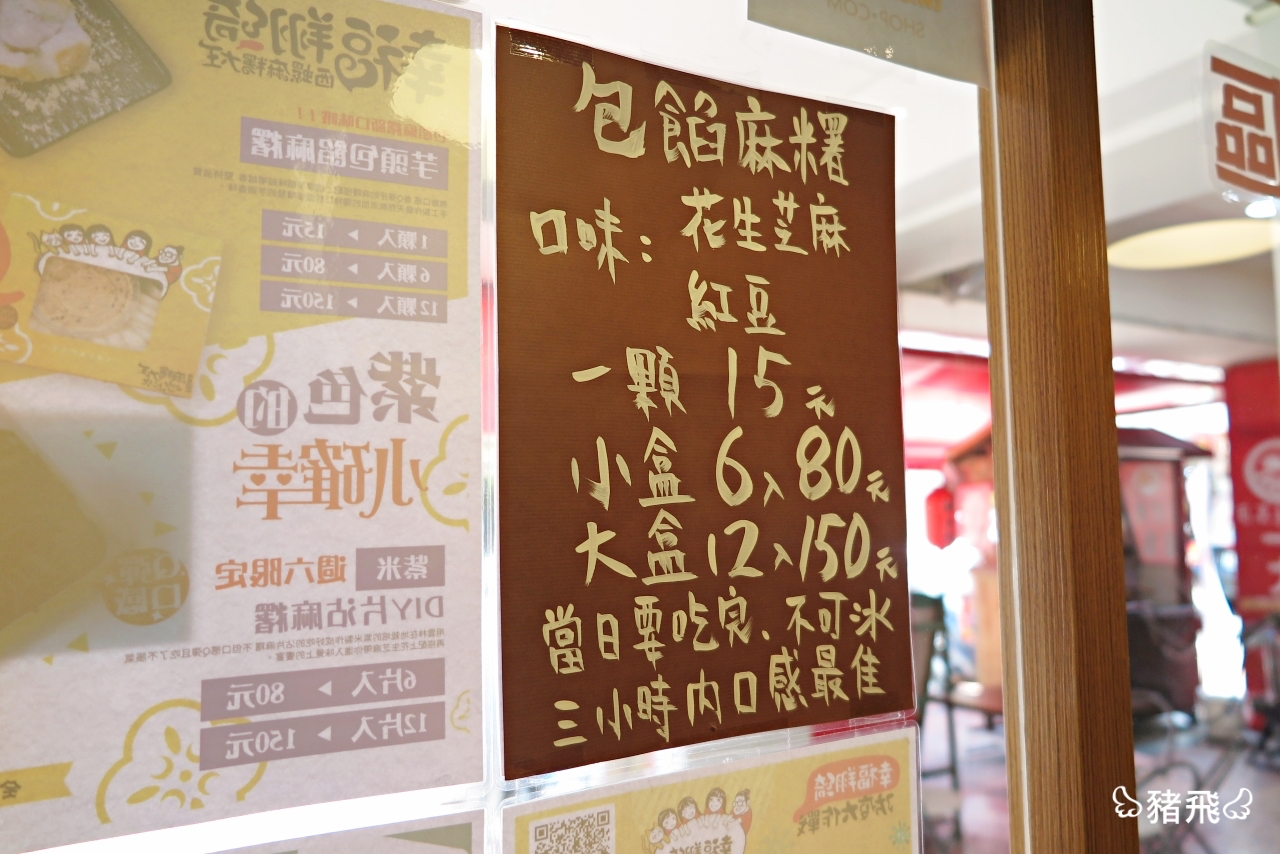 幸福翔綺
西螺麻糬大王
芋頭包餡麻糬
1顆入 ▶ 15元
6顆入 ▶ 80元
12顆入 ▶ 150元
紫色的
小確幸
紫米 週六限定
DIY片沾麻糬
6片入 ▶ 80元
12片入 ▶ 150元
SHOP.COM
包餡麻糬
口味: 花生芝麻
紅豆
一顆 15元
小盒6入80元
大盒12入150元
當日要吃完、不可冰
三小時內口感最佳
幸福翔綺
幸福
豬飛